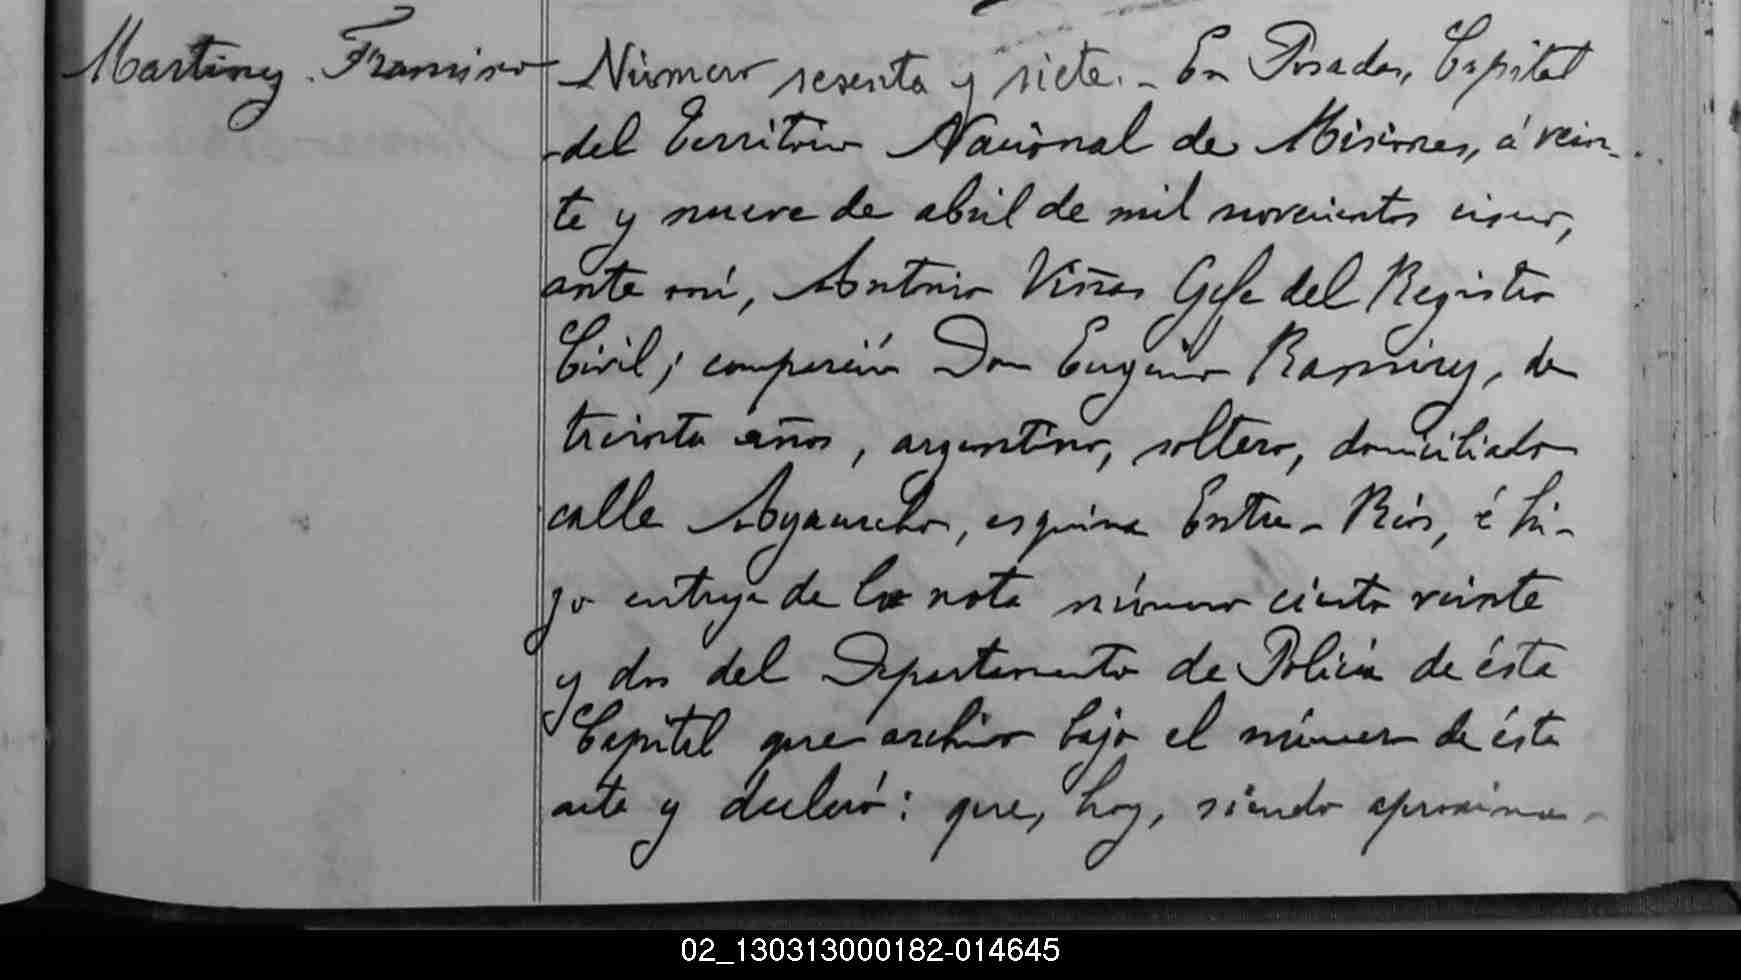 Martinez Francisco
Número sesenta y siete. - En Posadas, Capital
del Territorio Nacional de Misiones, á vein-
te y nueve de abril de mil novecientos cinco,
ante mí, Antonio Viñas Gefe del Registro
Civil; compareció Don Eugenio Ramirez, de
treinta años, argentino, soltero, domiciliado
calle Ayacucho, esquina Entre-Rios, é hi-
zo entrega de la nota número ciento veinte
y dos del Departamento de Policía de ésta
Capital que archivo bajo el número de ésta
acta y declaró: que, hoy, siendo aproxima-
02_130313000182-014645